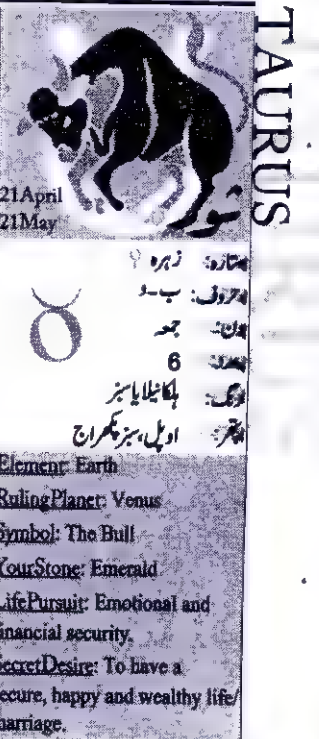 TAURUS
21 April
21 May
ثور
ستارہ: زہرہ ♀
حروف: ب-و
دن: جمعہ
عدد: 6
رنگ: ہلکا نیلا یا سبز
پتھر: اوپل، سبز پکھراج
Element: Earth
Ruling Planet: Venus
Symbol: The Bull
Your Stone: Emerald
Life Pursuit: Emotional and
financial security.
Secret Desire: To have a
secure, happy and wealthy life/
marriage.